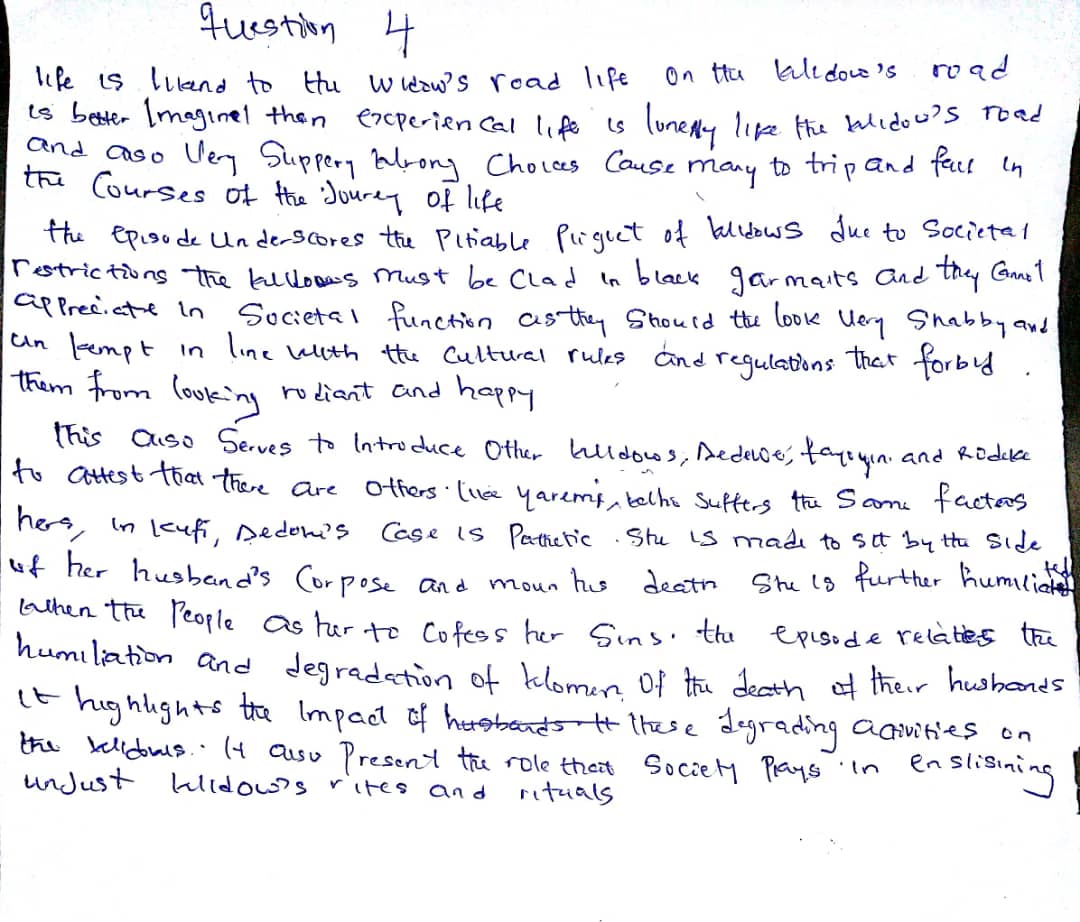 Question 4
life is likend to the widow's road life on the widow's road
is better Imaginel than experiencal life is lonely like the widow's road
and also Very Slippery Wrong Choices Cause many to trip and fall in
the Courses of the Jourey of life
the episode Underscores the Pitiable Plight of Widows due to Societal
restrictions the widows must be Clad in black garments and they Cannot
appreciate in Societal function as they Should the look Very Shabby and
unkempt in line with the Cultural rules and regulations that forbid
them from looking radiant and happy
This also Serves to Introduce Other widows, Dedewe, and Radeke
to attest that there are others like Yaremi, who Suffers the Same factors
hers, in Kufi, Case is Pathetic. She is made to sit by the Side
of her husband's Corpose and moun his death She is further humiliated
When the People as her to Cofess her Sins. the episode relates the
humiliation and degradation of Women Of the death of their husbands
it highlights the Impact of husbands It these degrading activities on
the widows. It also Present the role that Society Plays in
unJust Widow's rites and rituals